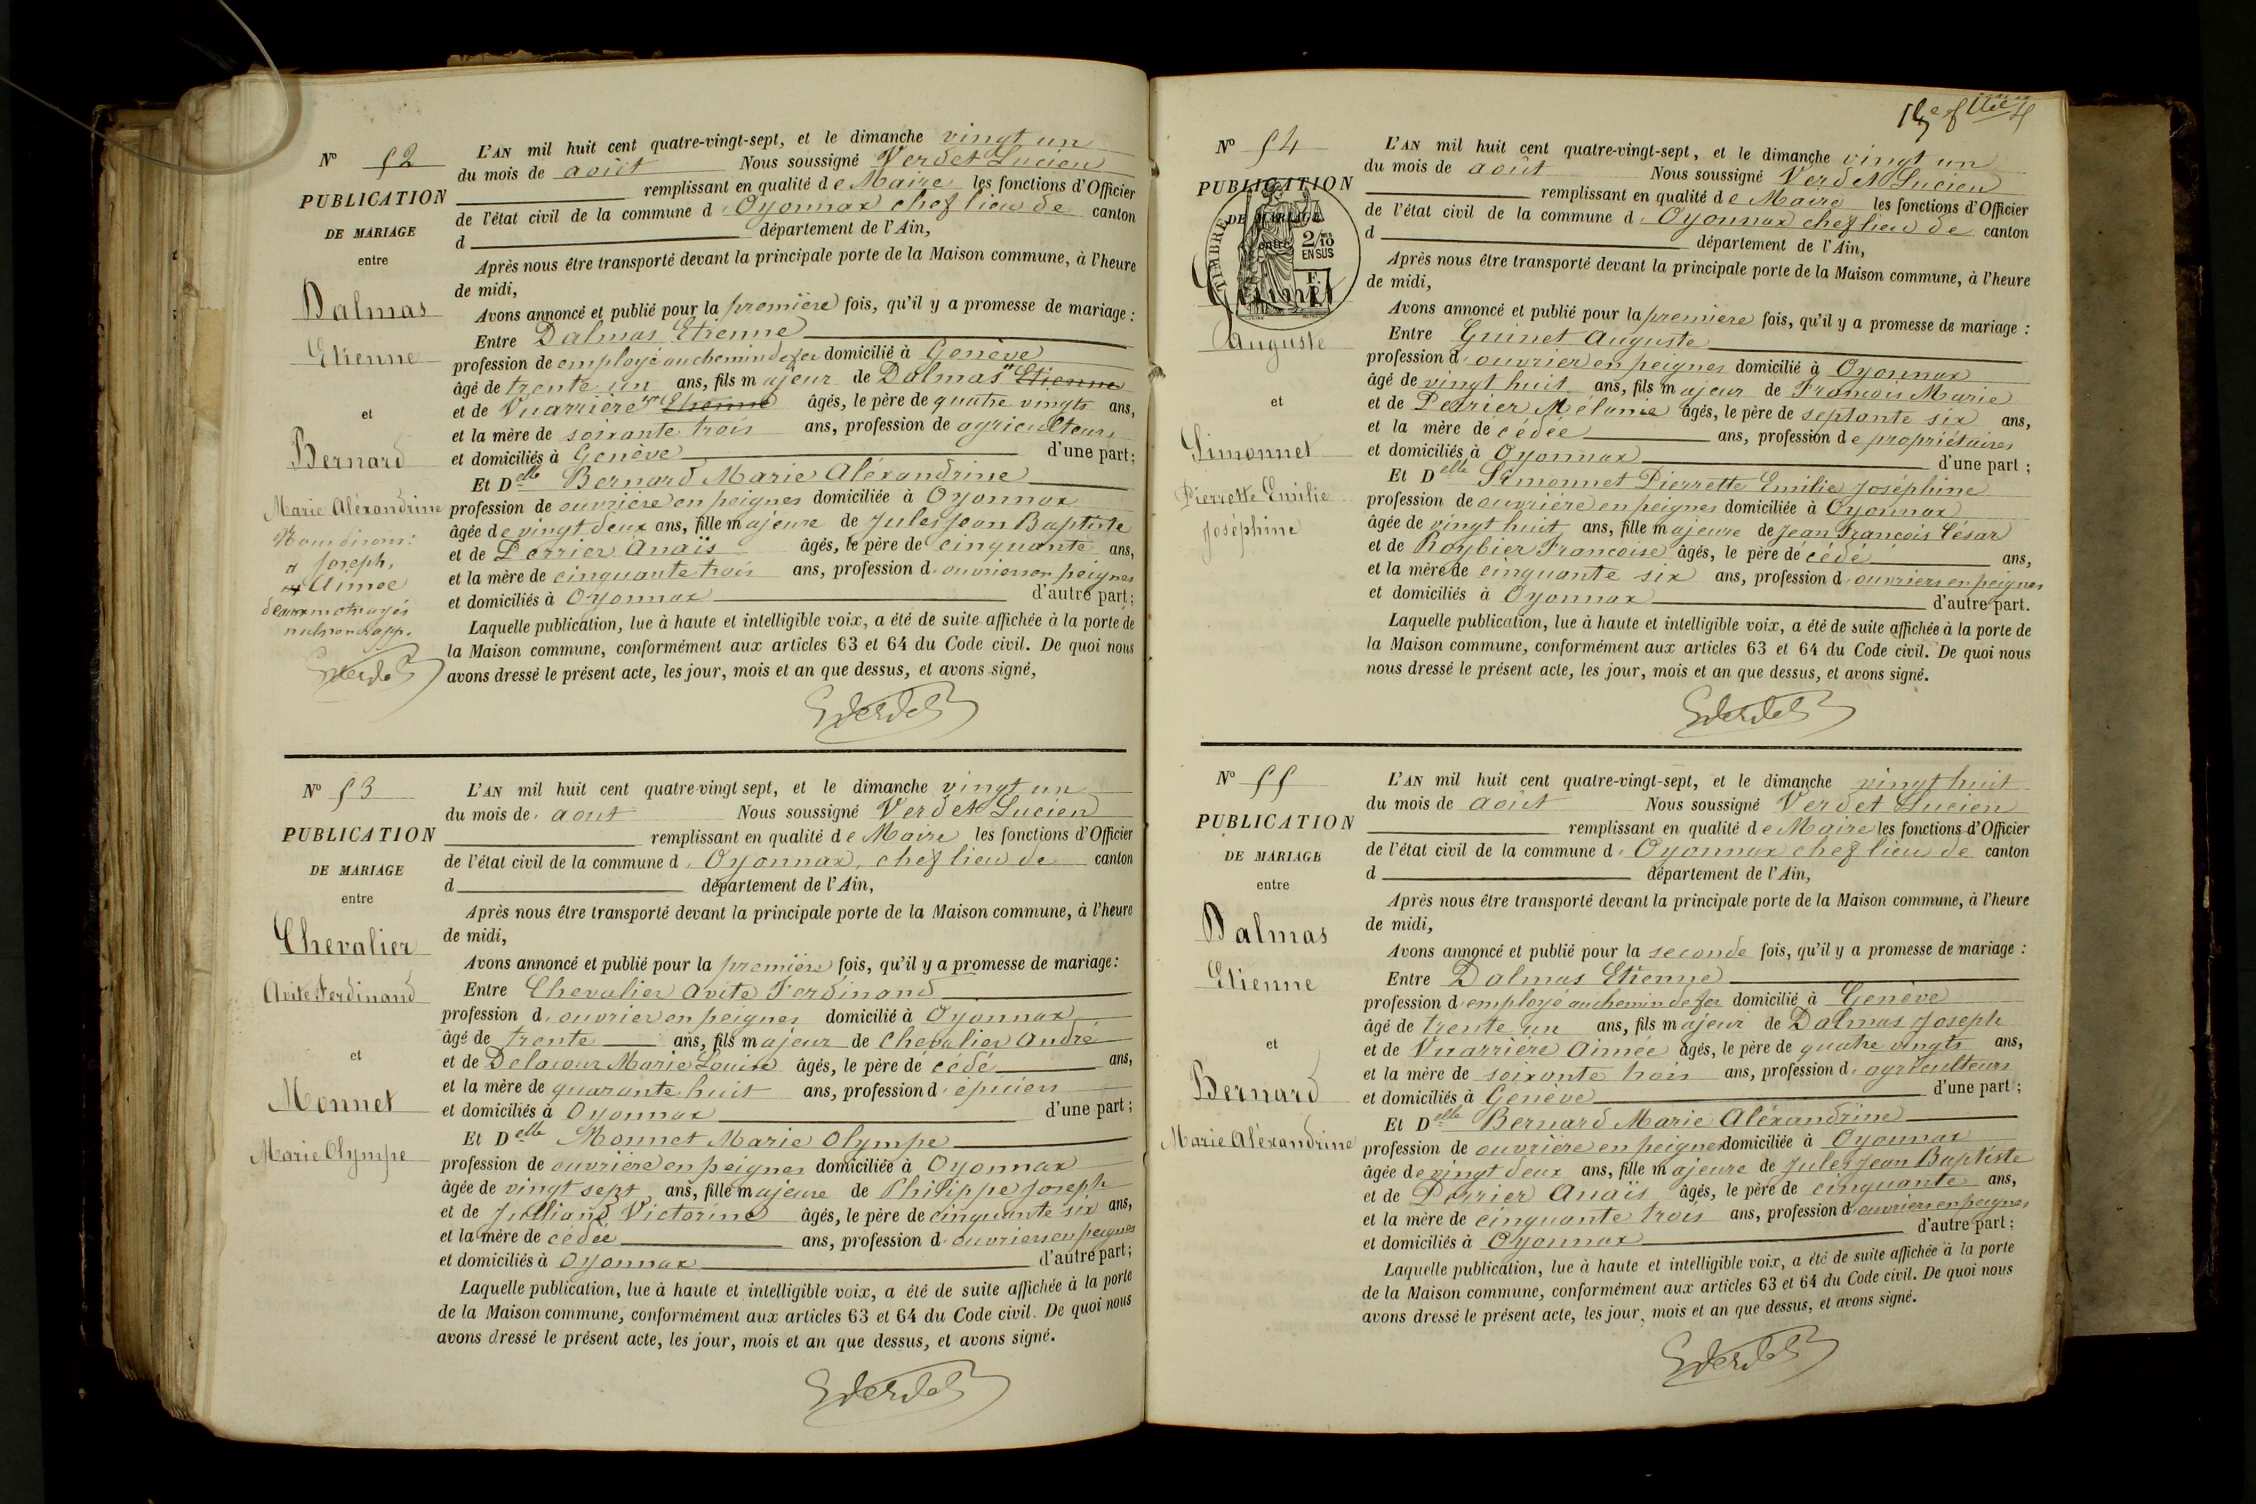 N° 52
PUBLICATION
DE MARIAGE
entre
Dalmas
Etienne
et
Bernard
Marie Aléxandrine
Joseph,
Aimée
L'AN mil huit cent quatre-vingt-sept, et le dimanche vingt un
du mois de août Nous soussigné Verdet Lucien
remplissant en qualité de Maire les fonctions d'Officier
de l'état civil de la commune d'Oyonnax chef lieu de canton
d département de l'Ain,
Après nous être transporté devant la principale porte de la Maison commune, à l'heure
de midi,
Avons annoncé et publié pour la première fois, qu'il y a promesse de mariage :
Entre Dalmas Etienne
profession de employé au chemin de fer domicilié à Genève
âgé de trente un ans, fils majeur de Dalmas Etienne
et de Vuarrière Etienne âgés, le père de quatre vingts ans,
et la mère de soixante trois ans, profession de agriculteurs
et domiciliés à Genève d'une part;
Et Delle Bernard Marie Aléxandrine
profession de ouvrière en peignes domiciliée à Oyonnax
âgée de vingt deux ans, fille majeure de Jules Jean Baptiste
et de Perrier Anaïs âgés, le père de cinquante ans,
et la mère de cinquante trois ans, profession d'ouvriers en peignes
et domiciliés à Oyonnax d'autre part;
Laquelle publication, lue à haute et intelligible voix, a été de suite affichée à la porte de
la Maison commune, conformément aux articles 63 et 64 du Code civil. De quoi nous
avons dressé le présent acte, les jour, mois et an que dessus, et avons signé,
Verdet
N° 53
PUBLICATION
DE MARIAGE
entre
Chevalier
Avite Ferdinand
et
Monnet
Marie Olympe
L'AN mil huit cent quatre-vingt sept, et le dimanche vingt un
du mois de août Nous soussigné Verdet Lucien
remplissant en qualité de Maire les fonctions d'Officier
de l'état civil de la commune d'Oyonnax, chef lieu de canton
d département de l'Ain,
Après nous être transporté devant la principale porte de la Maison commune, à l'heure
de midi,
Avons annoncé et publié pour la première fois, qu'il y a promesse de mariage:
Entre Chevalier Avite Ferdinand
profession d'ouvrier en peignes domicilié à Oyonnax
âgé de trente ans, fils majeur de Chevalier André
et de Delacour Marie Louise âgés, le père décédé ans,
et la mère de quarante huit ans, profession d'épiciers
et domiciliés à Oyonnax d'une part;
Et Delle Monnet Marie Olympe
profession de ouvrière en peignes domiciliée à Oyonnax
âgée de vingt sept ans, fille majeure de Philippe Joseph
et de Julliand Victorine âgés, le père de cinquante six ans,
et la mère de cédée ans, profession d'ouvriers en peignes
et domiciliés à Oyonnax d'autre part;
Laquelle publication, lue à haute et intelligible voix, a été de suite affichée à la porte
de la Maison commune, conformément aux articles 63 et 64 du Code civil. De quoi nous
avons dressé le présent acte, les jour, mois et an que dessus, et avons signé.
Verdet
N° 54
PUBLICATION
DE MARIAGE
entre
TIMBRE
2/10 EN SUS
Guinet
Auguste
et
Simonnet
Pierrette Emilie
Joséphine
L'AN mil huit cent quatre-vingt-sept, et le dimanche vingt un
du mois de août Nous soussigné Verdet Lucien
remplissant en qualité de Maire les fonctions d'Officier
de l'état civil de la commune d'Oyonnax chef lieu de canton
d département de l'Ain,
Après nous être transporté devant la principale porte de la Maison commune, à l'heure
de midi,
Avons annoncé et publié pour la première fois, qu'il y a promesse de mariage :
Entre Guinet Auguste
profession d'ouvrier en peignes domicilié à Oyonnax
âgé de vingt huit ans, fils majeur de François Marie
et de Perrier Mélanie âgés, le père de septante six ans,
et la mère de cédée ans, profession de propriétaires
et domiciliés à Oyonnax d'une part ;
Et Delle Simonnet Pierrette Emilie Joséphine
profession de ouvrière en peignes domiciliée à Oyonnax
âgée de vingt huit ans, fille majeure de Jean François César
et de Roybier Francoise âgés, le père décédé ans,
et la mère de cinquante six ans, profession d'ouvriers en peignes
et domiciliés à Oyonnax d'autre part.
Laquelle publication, lue à haute et intelligible voix, a été de suite affichée à la porte de
la Maison commune, conformément aux articles 63 et 64 du Code civil. De quoi nous
nous dressé le présent acte, les jour, mois et an que dessus, et avons signé.
Verdet
N° 55
PUBLICATION
DE MARIAGE
entre
Dalmas
Etienne
et
Bernard
Marie Aléxandrine
L'AN mil huit cent quatre-vingt-sept, et le dimanche vingt huit
du mois de août Nous soussigné Verdet Lucien
remplissant en qualité de Maire les fonctions d'Officier
de l'état civil de la commune d'Oyonnax chef lieu de canton
d département de l'Ain,
Après nous être transporté devant la principale porte de la Maison commune, à l'heure
de midi,
Avons annoncé et publié pour la seconde fois, qu'il y a promesse de mariage :
Entre Dalmas Etienne
profession d'employé au chemin de fer domicilié à Genève
âgé de trente un ans, fils majeur de Dalmas Joseph
et de Vuarrière Aimée âgés, le père de quatre vingts ans,
et la mère de soixante trois ans, profession d'agriculteurs
et domiciliés à Genève d'une part ;
Et Delle Bernard Marie Aléxandrine
profession de ouvrière en peignes domiciliée à Oyonnax
âgée de vingt deux ans, fille majeure de Jules Jean Baptiste
et de Perrier Anaïs âgés, le père de cinquante ans,
et la mère de cinquante trois ans, profession d'ouvriers en peignes
et domiciliés à Oyonnax d'autre part ;
Laquelle publication, lue à haute et intelligible voix, a été de suite affichée à la porte
de la Maison commune, conformément aux articles 63 et 64 du Code civil. De quoi nous
avons dressé le présent acte, les jour, mois et an que dessus, et avons signé.
Verdet